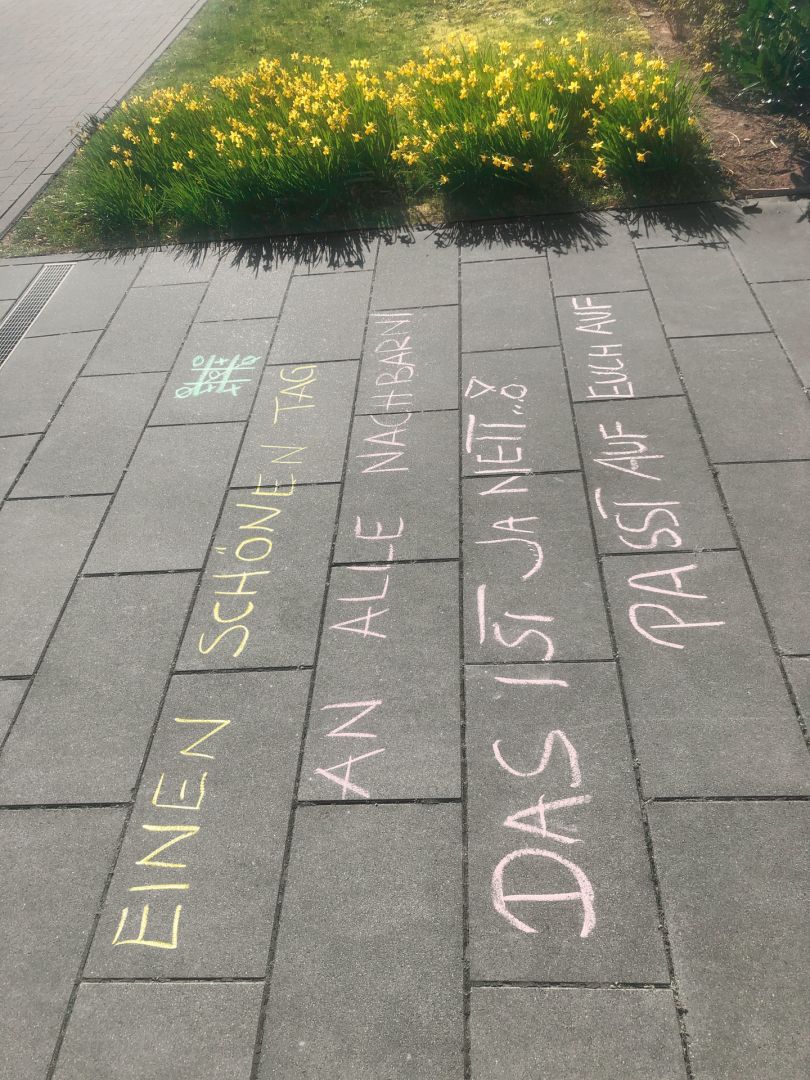 EINEN SCHÖNEN TAG
AN ALLE NACHBARN!
DAS IST JA NETT..!
PASST AUF EUCH AUF